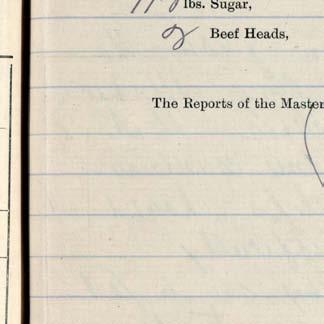 lbs. Sugar,
2 Beef Heads,
The Reports of the Master